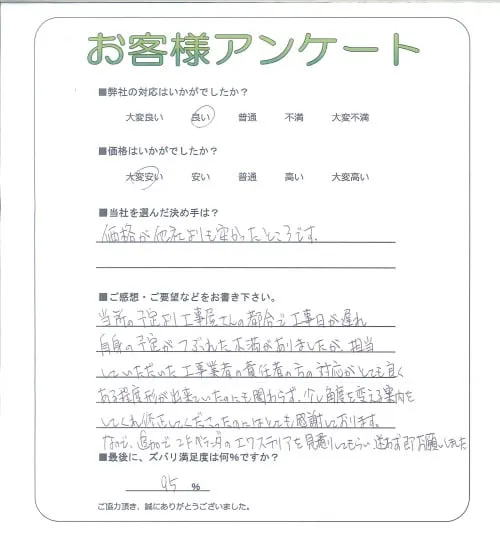 お客様アンケート
■弊社の対応はいかがでしたか？
大変良い 良い 普通 不満 大変不満
■価格はいかがでしたか？
大変安い 安い 普通 高い 大変高い
■当社を選んだ決め手は？
価格が他社よりも安かったところです。
■ご感想・ご要望などをお書き下さい。
当初の予定より工事屋さんの都合で工事日が遅れ
自身の予定がつぶれた不満がありましたが、担当
していただいた工事業者の責任者の方の対応がとても良く
ある程度形が出来ていたのにも関わらず、少し角度を変える案内を
してくれ修正してくださったのにはとても感謝しております。
なので、追加で2Fベランダのエクステリアを見積りしてもらい、迷わず即お願いしました
■最後に、ズバリ満足度は何%ですか？
95 %
ご協力頂き、誠にありがとうございました。